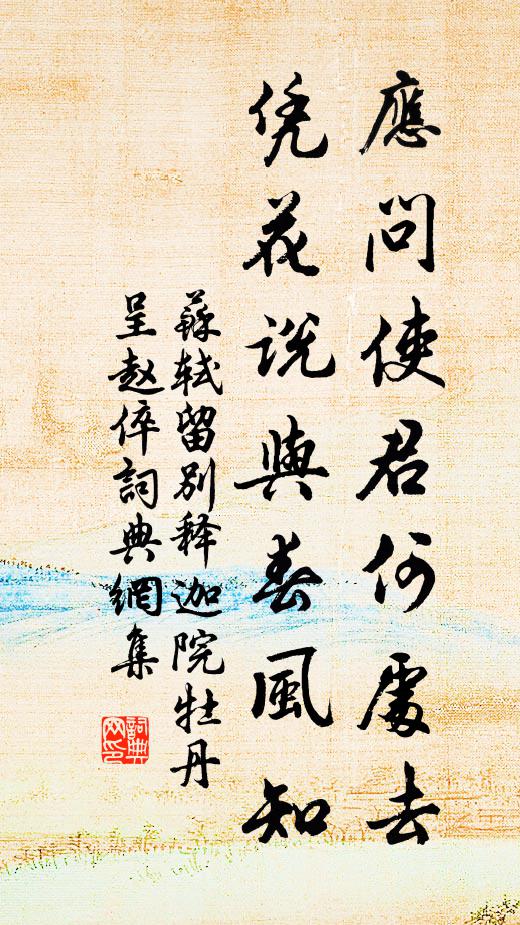 應問使君何處去
凭花說與春風知
蘇軾留别释迦院牡丹
呈赵倅詞典網集
詞典
网印